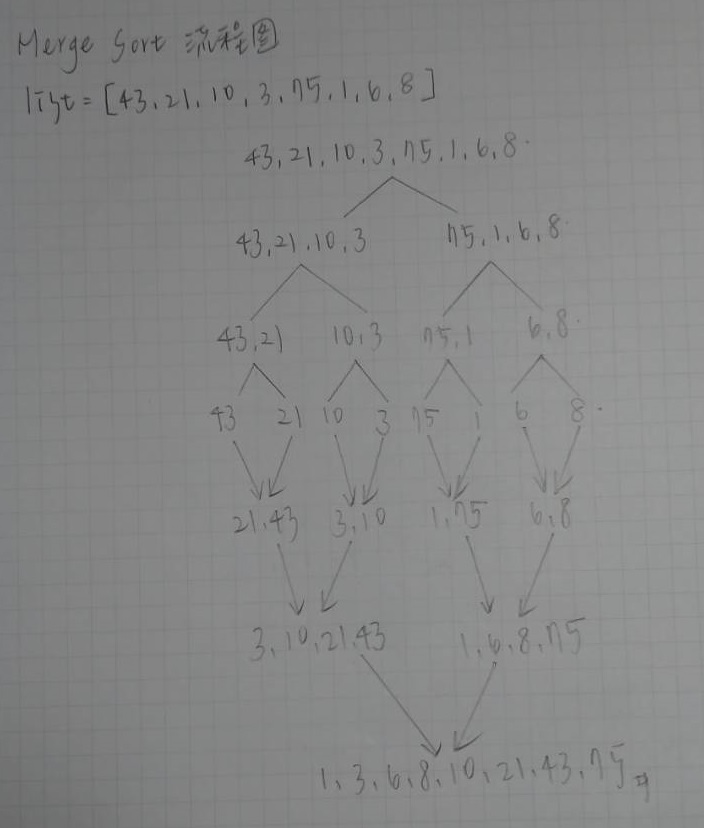 Merge Sort 流程图
list = [43, 21, 10, 3, 75, 1, 6, 8]
43, 21, 10, 3, 75, 1, 6, 8
43, 21, 10, 3 75, 1, 6, 8
43, 21 10, 3 75, 1 6, 8
43 21 10 3 75 1 6 8
21, 43 3, 10 1, 75 6, 8
3, 10, 21, 43 1, 6, 8, 75
1, 3, 6, 8, 10, 21, 43, 75